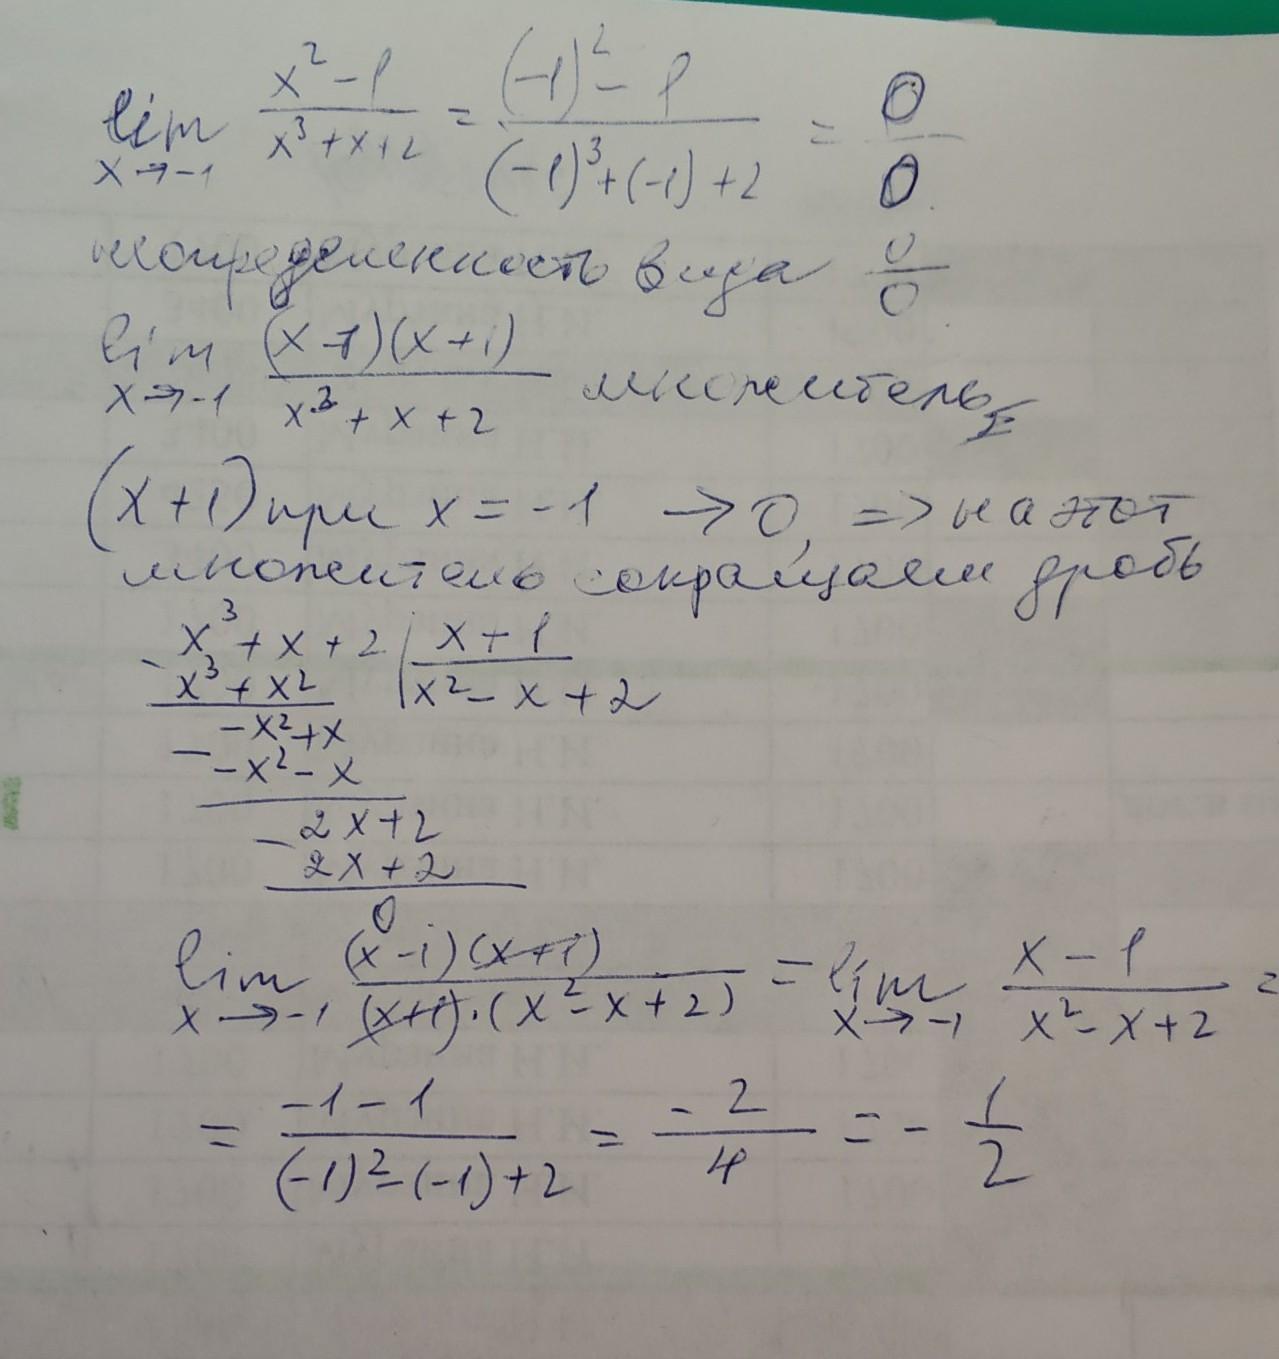 lim x→-1 (x² - 1)/(x³ + x + 2) = ((-1)² - 1)/((-1)³ + (-1) + 2) = 0/0
неопределенность вида 0/0
lim x→-1 (x - 1)(x + 1)/(x³ + x + 2) множитель
(x + 1) при x = -1 → 0, => на этот
множитель сокращаем дробь
- x³ + x + 2 | x + 1
x³ + x² | x² - x + 2
- -x² + x
-x² - x
- 2x + 2
2x + 2
0
lim x→-1 (x - 1)(x + 1)/((x + 1)·(x² - x + 2)) = lim x→-1 (x - 1)/(x² - x + 2) =
= (-1 - 1)/((-1)² - (-1) + 2) = -2/4 = -1/2